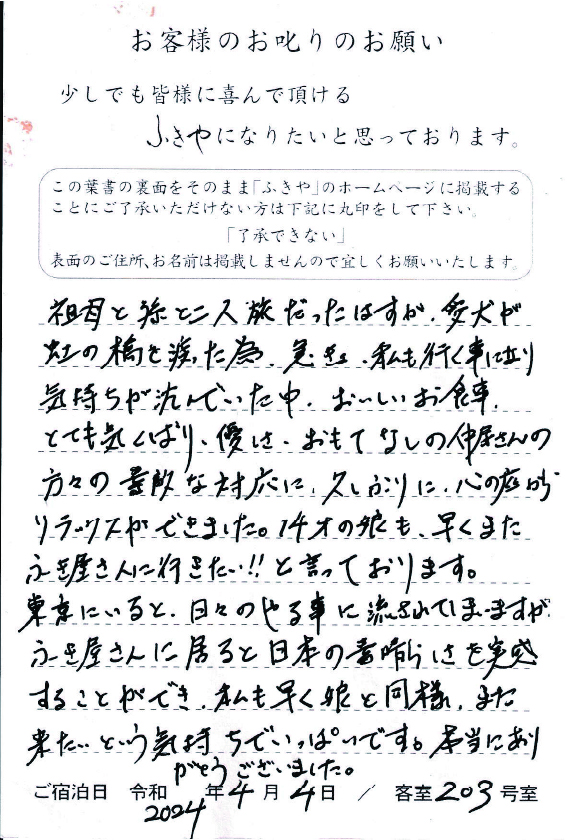 お客様のお叱りのお願い
少しでも皆様に喜んで頂ける
ふきやになりたいと思っております。
この葉書の裏面をそのまま「ふきや」のホームページに掲載する
ことにご了承いただけない方は下記に丸印をして下さい。
「了承できない」
表面のご住所、お名前は掲載しませんので宜しくお願いいたします。
祖母と孫と二人旅だったはずが、愛犬が
虹の橋を渡った為、急きょ、私も行く事になり
気持ちが沈んでいた中、おいしいお食事、
とても気くばり、優しさ、おもてなしの仲居さんの
方々の素敵な対応に、久しぶりに、心の底から
リラックスができました。14才の娘も、早くまた
ふき屋さんに行きたい!!と言っております。
東京にいると、日々のやる事に流されてしまいますが、
ふき屋さんに居ると日本の素晴らしさを実感
することができ、私も早く娘と同様、また
来たいという気持ちでいっぱいです。本当にあり
がとうございました。
ご宿泊日 令和 2024 年 4 月 4 日 / 客室 203 号室